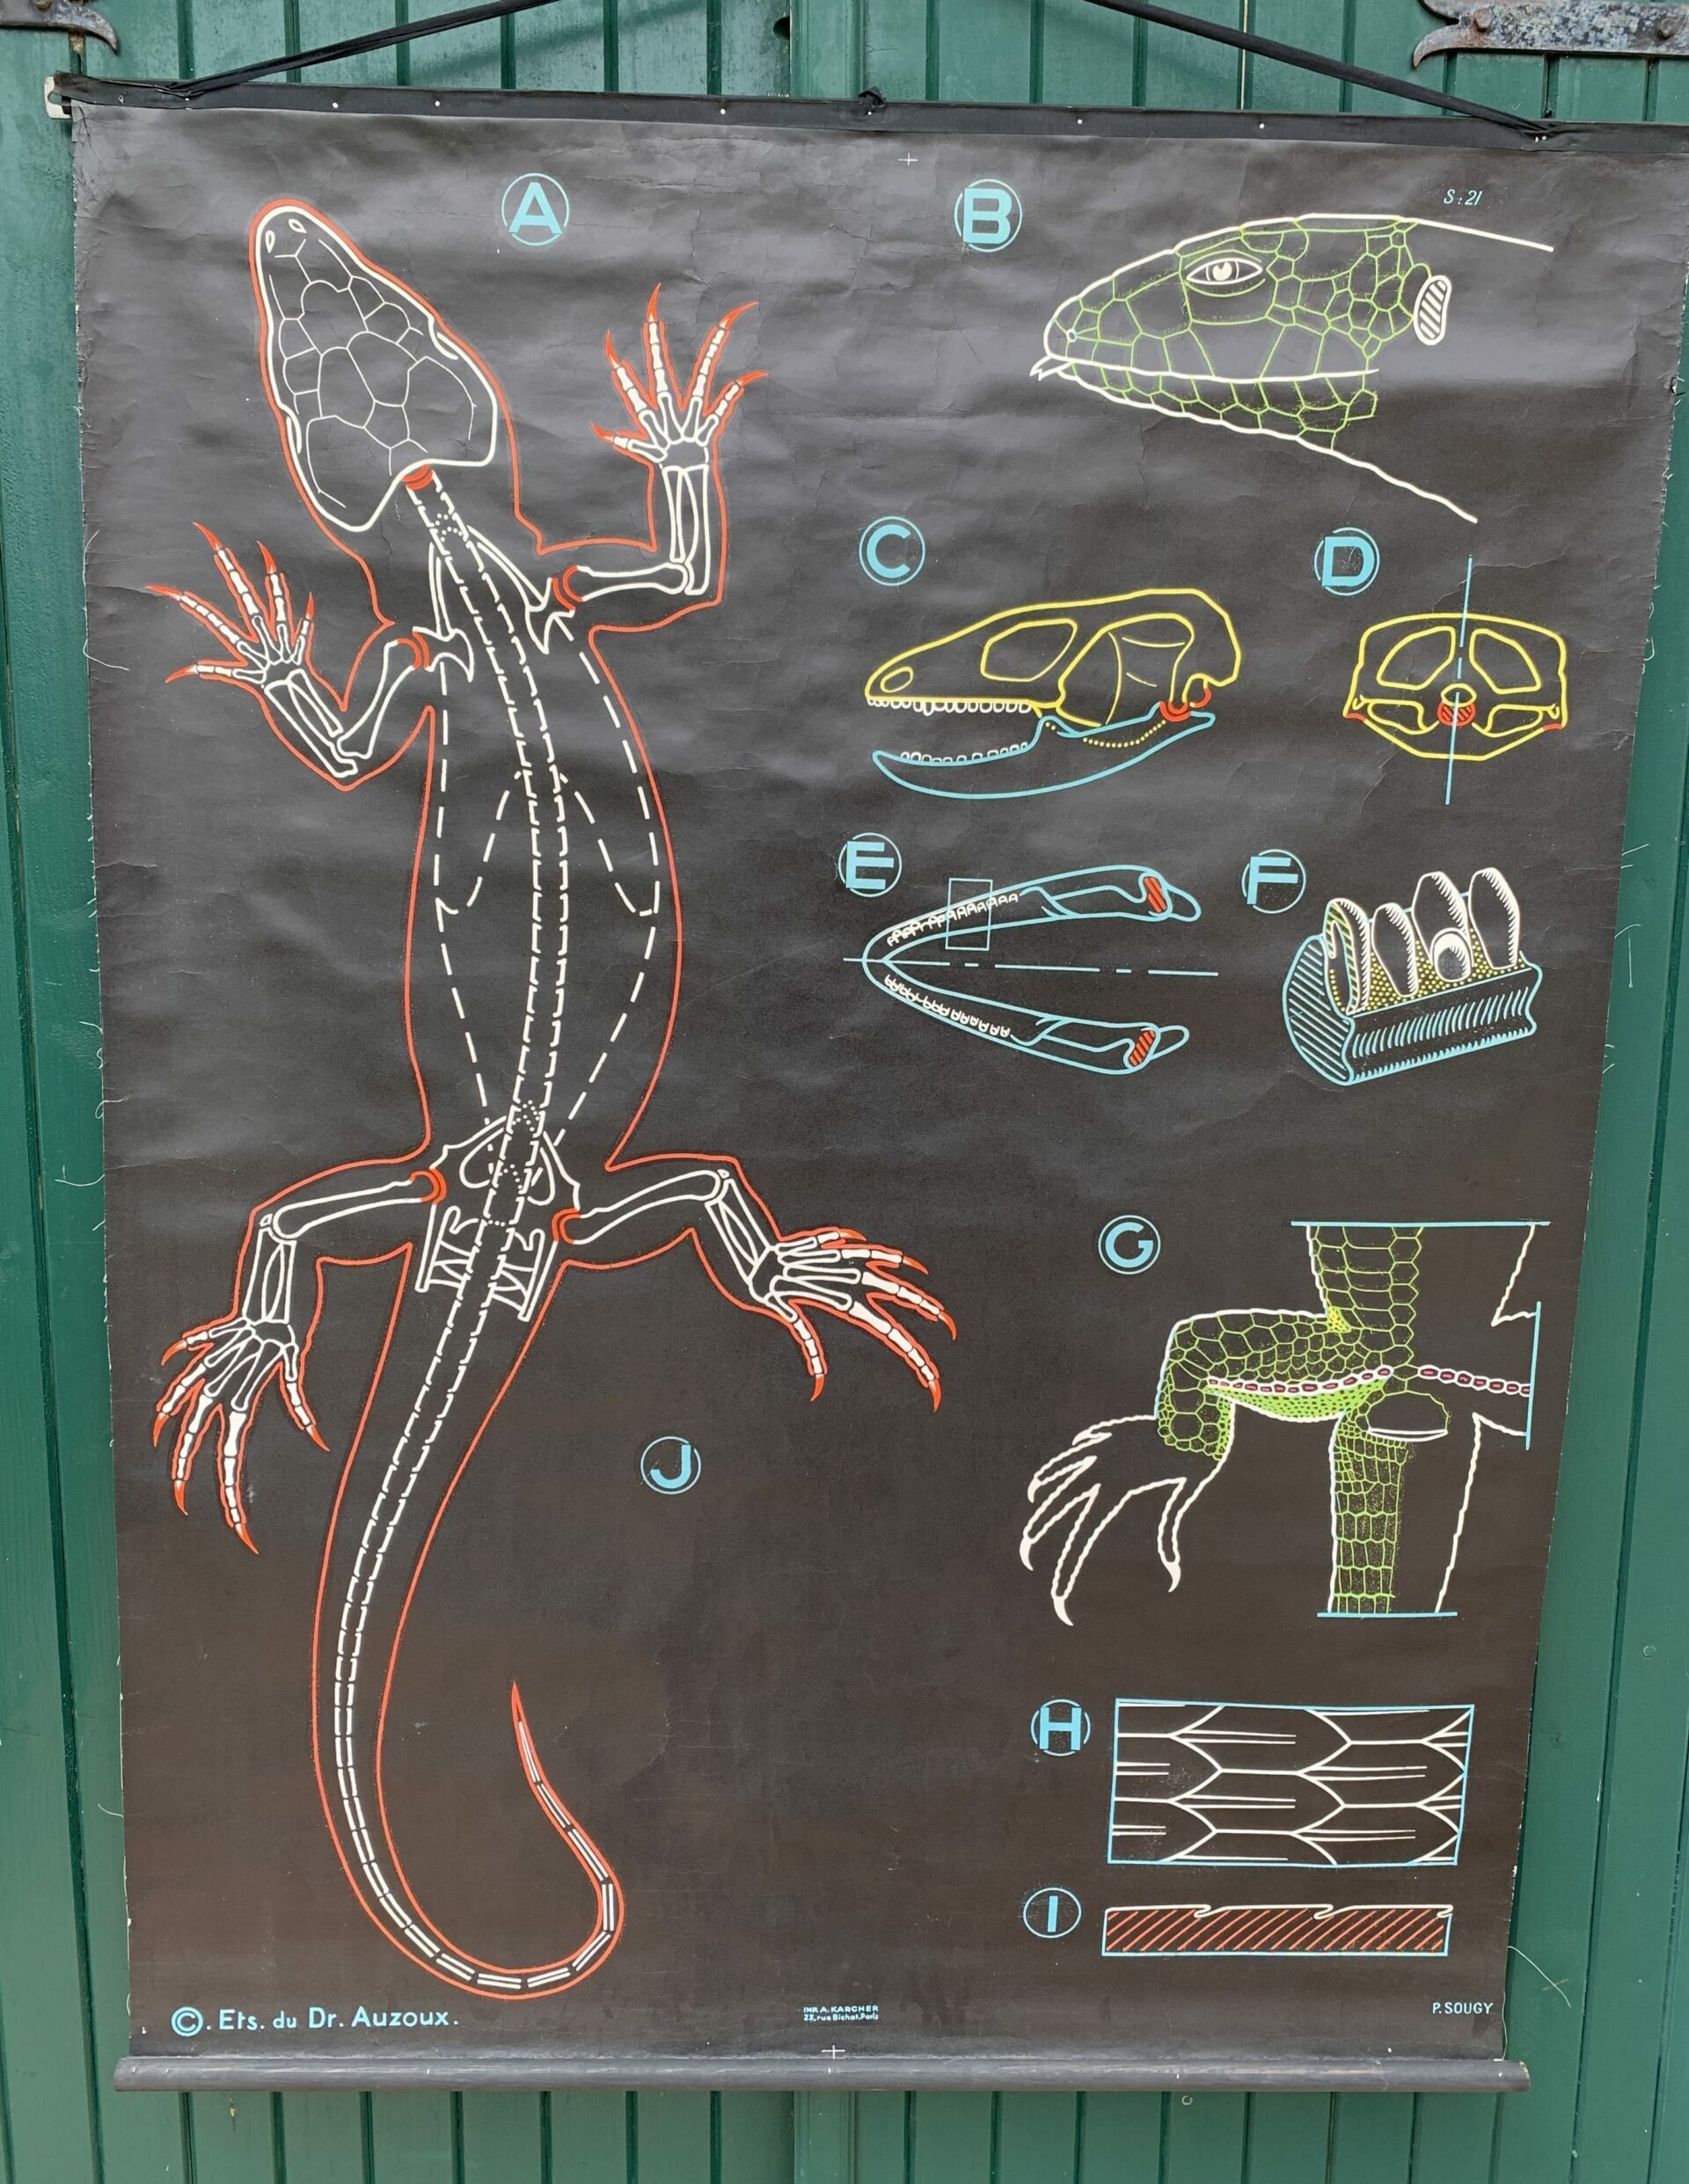 A
B
S:21
C
D
E
F
G
J
H
I
©. Ets. du Dr. Auzoux.
IMP. A. KARCHER
23, rue Bichat. Paris
P. SOUGY